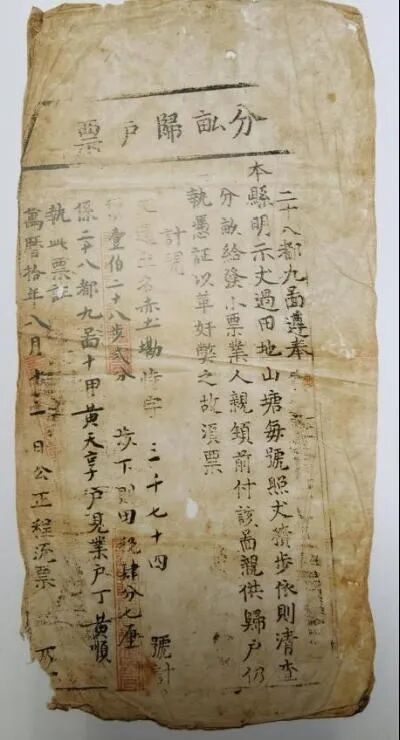 分畝歸戶票
二十八都九啚遵奉
本縣明示丈過田地山塘每號照丈積步依則清查
分畝給發小票業人親領前付該啚親供歸戶仍
執憑証以革奸弊之故湏票
計開
土名赤土塝 字 三千七十四 號計
壹伯二十八步弍分 下則田稅肆分七厘
係二十八都九啚十甲黃天享戶見業戶丁黃順
執此票証
萬曆拾年八月十二日公正程流票